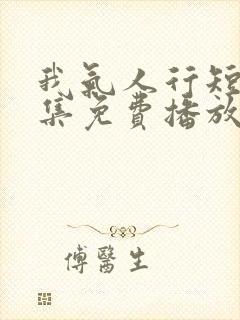 我氣人行短
集免費播放
傅醫生